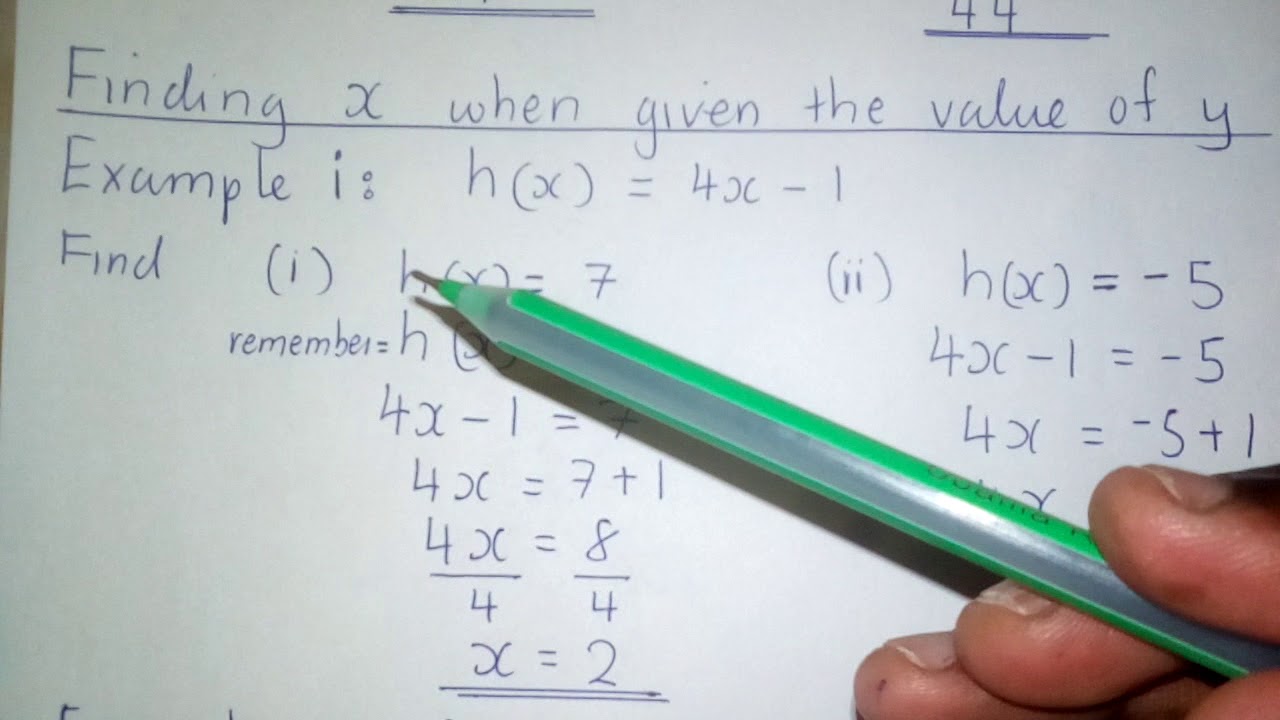 44
Finding x when given the value of y
Example i: h(x) = 4x - 1
Find (i) h(x) = 7
remember = h(x)
4x - 1 = 7
4x = 7 + 1
4x = 8
4 4
x = 2
(ii) h(x) = -5
4x - 1 = -5
4x = -5 + 1
x